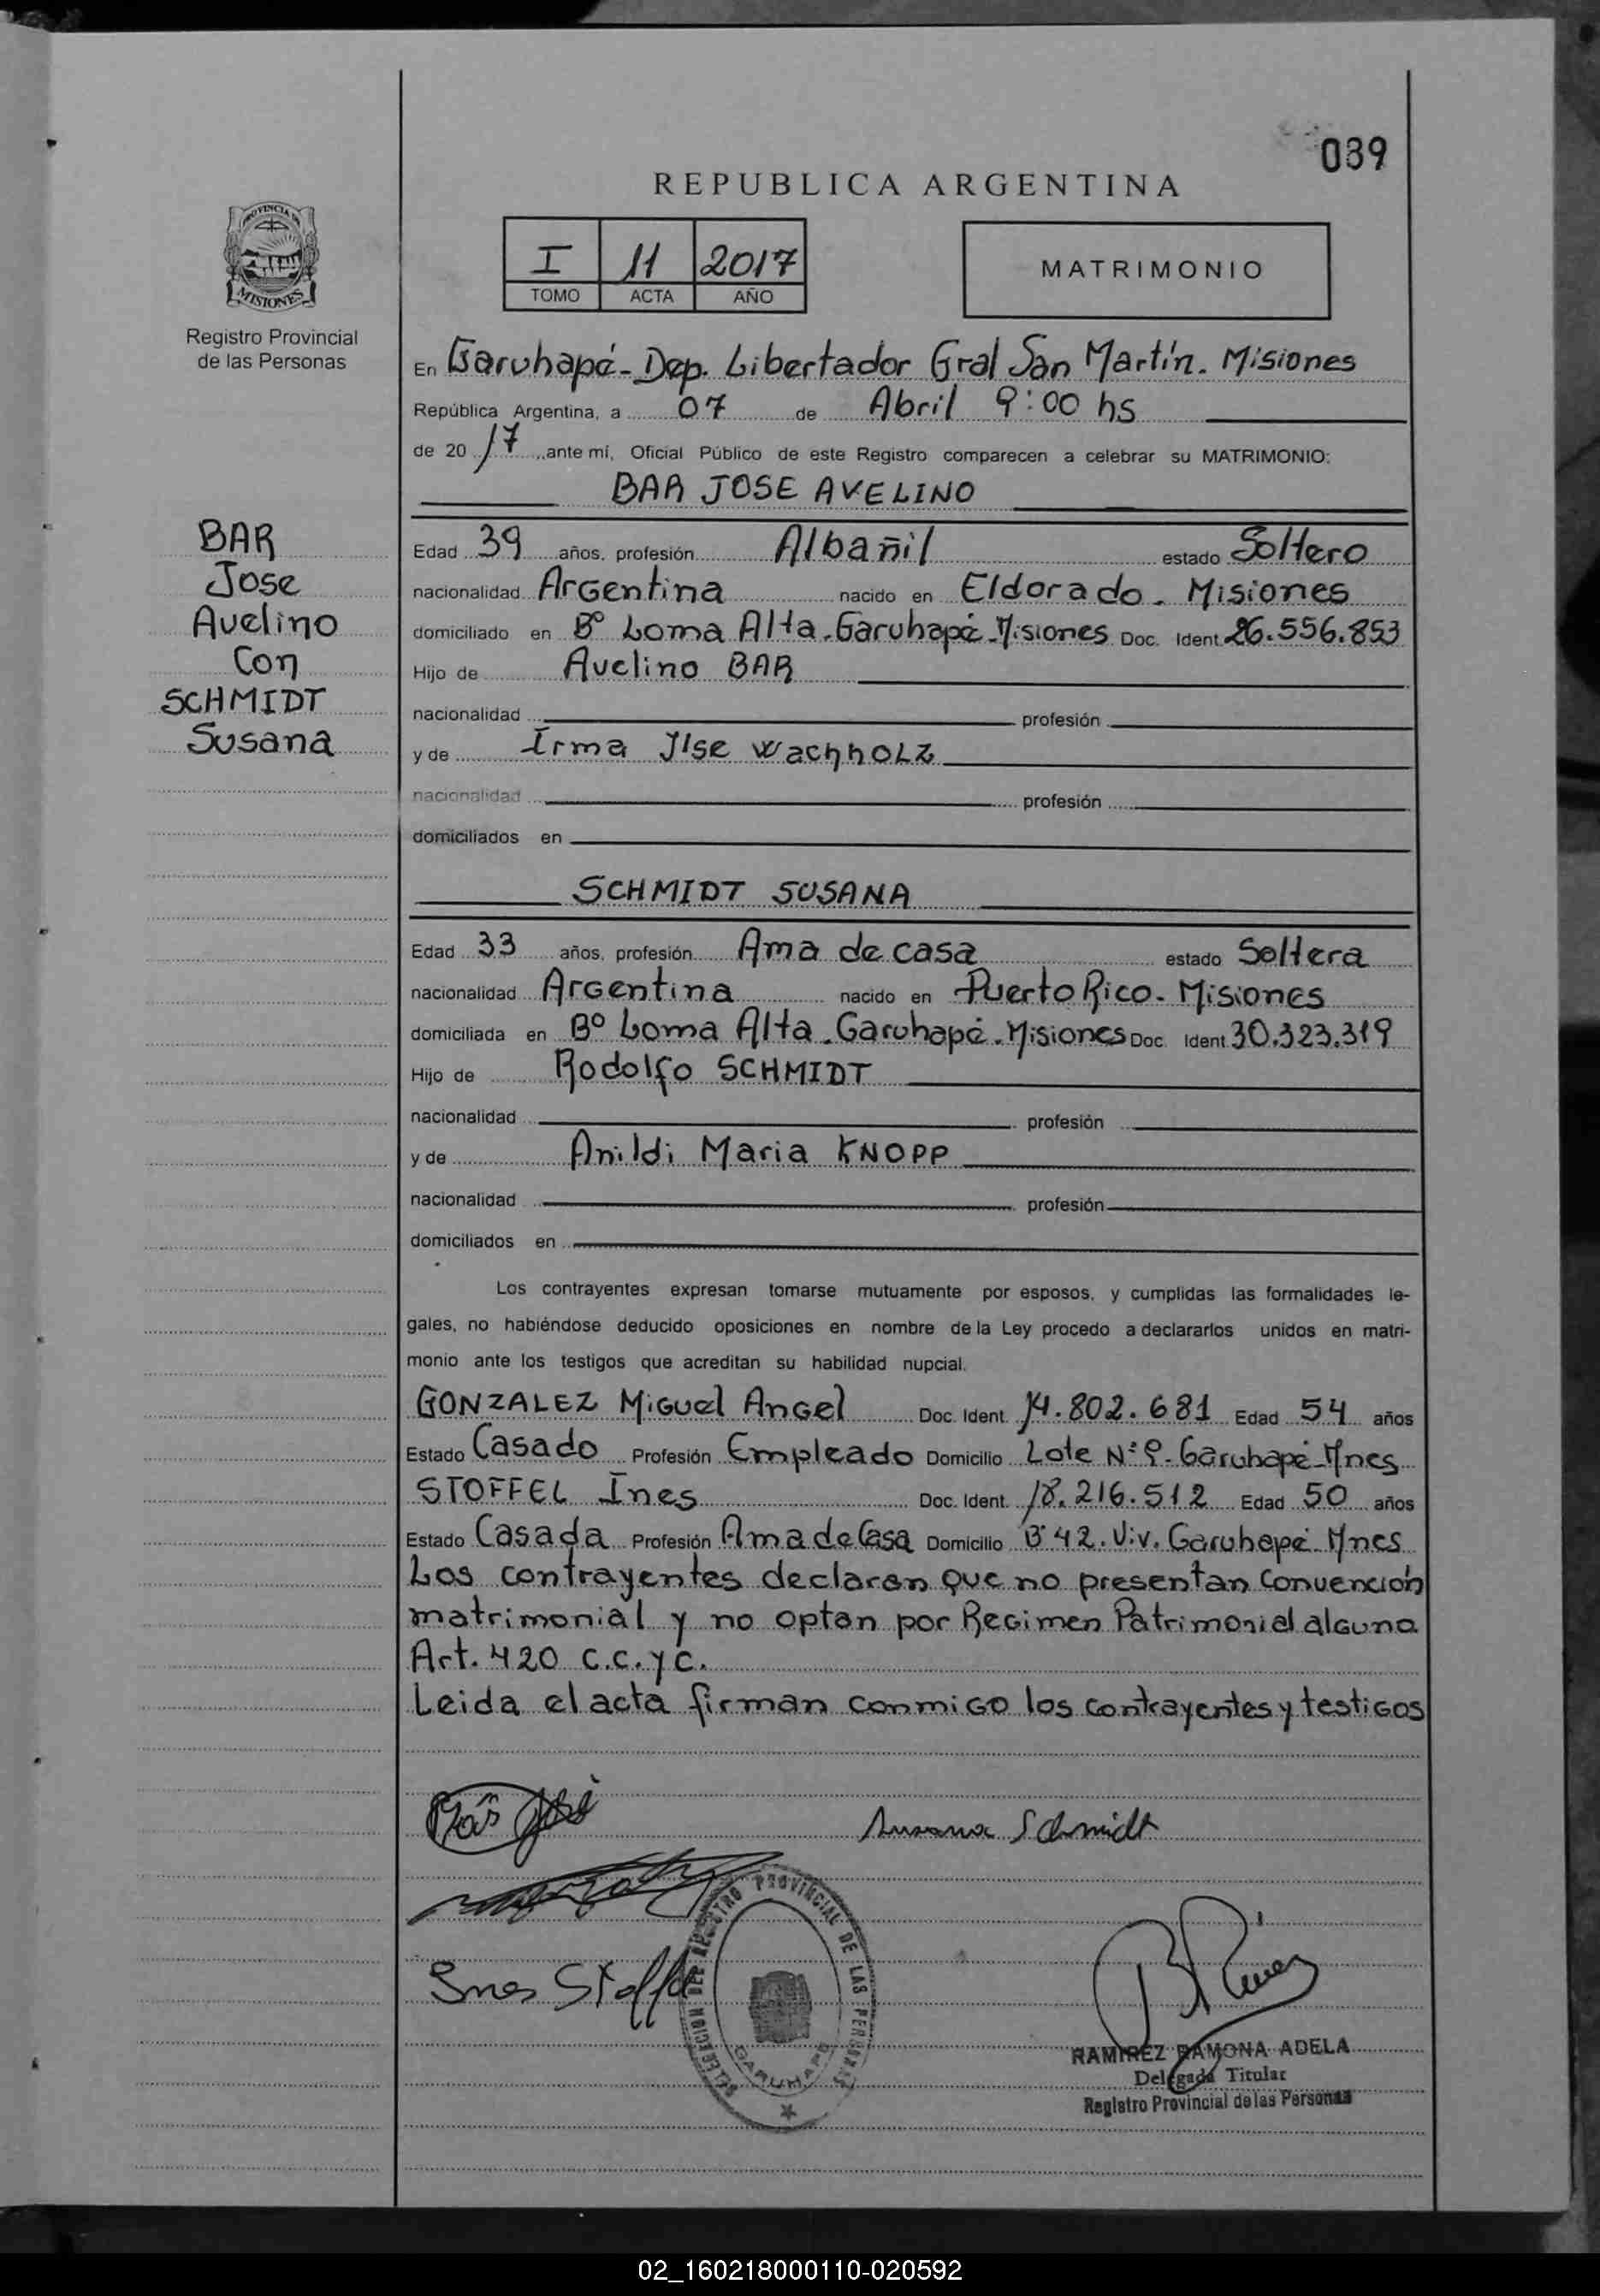 039
REPUBLICA ARGENTINA
PROVINCIA DE
MISIONES
Registro Provincial
de las Personas
I 11 2017
TOMO ACTA AÑO
MATRIMONIO
En Garuhapé - Dep. Libertador Gral San Martín. Misiones
República Argentina, a 07 de Abril 9:00 hs
de 2017, ante mí, Oficial Público de este Registro comparecen a celebrar su MATRIMONIO:
BAR JOSE AVELINO
BAR
Jose
Avelino
Con
SCHMIDT
Susana
Edad 39 años, profesión Albañil estado Soltero
nacionalidad Argentina nacido en Eldorado - Misiones
domiciliado en Bº Loma Alta. Garuhapé - Misiones Doc. Ident. 26.556.853
Hijo de Avelino BAR
nacionalidad profesión
y de Irma Ilse Wachholz
nacionalidad profesión
domiciliados en
SCHMIDT SUSANA
Edad 33 años, profesión Ama de casa estado Soltera
nacionalidad Argentina nacido en Puerto Rico - Misiones
domiciliada en Bº Loma Alta. Garuhapé - Misiones Doc. Ident. 30.323.319
Hijo de Rodolfo SCHMIDT
nacionalidad profesión
y de Anildi Maria KNOPP
nacionalidad profesión
domiciliados en
Los contrayentes expresan tomarse mutuamente por esposos, y cumplidas las formalidades le-
gales, no habiéndose deducido oposiciones en nombre de la Ley procedo a declararlos unidos en matri-
monio ante los testigos que acreditan su habilidad nupcial.
GONZALEZ Miguel Angel Doc. Ident. 14.802.681 Edad 54 años
Estado Casado Profesión Empleado Domicilio Lote Nº 9 - Garuhapé - Mnes
STOFFEL Ines Doc. Ident. 18.216.512 Edad 50 años
Estado Casada Profesión Ama de Casa Domicilio Bº 42. Viv. Garuhapé - Mnes
Los contrayentes declaran que no presentan Convención
matrimonial y no optan por Regimen Patrimonial alguno
Art. 420 C.C. y C.
Leida el acta firman conmigo los contrayentes y testigos
Susana Schmidt
Ines Stoffel
DEL REGISTRO PROVINCIAL DE LAS PERSONAS
GARUHAPE
RAMIREZ RAMONA ADELA
Delegada Titular
Registro Provincial de las Personas
02_160218000110-020592